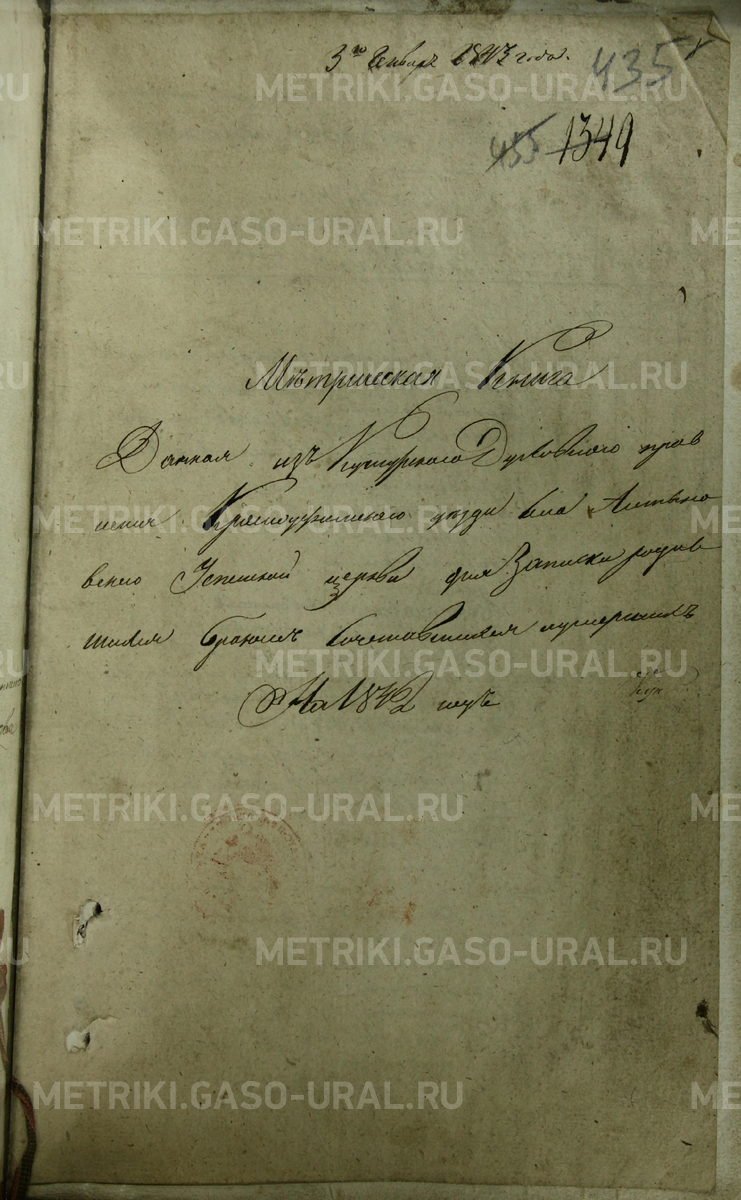 3го Генваря 1843 года.
435
435 1349
Метрическая Книга
Данная изъ Кунгурского Духовного прав
ления Красноуфимского уезда села Алтына
вского Успенской церкви для Записки родив
шихся браком сочетавшихся и умерших
На 1842 годъ
METRIKI.GASO-URAL.RU